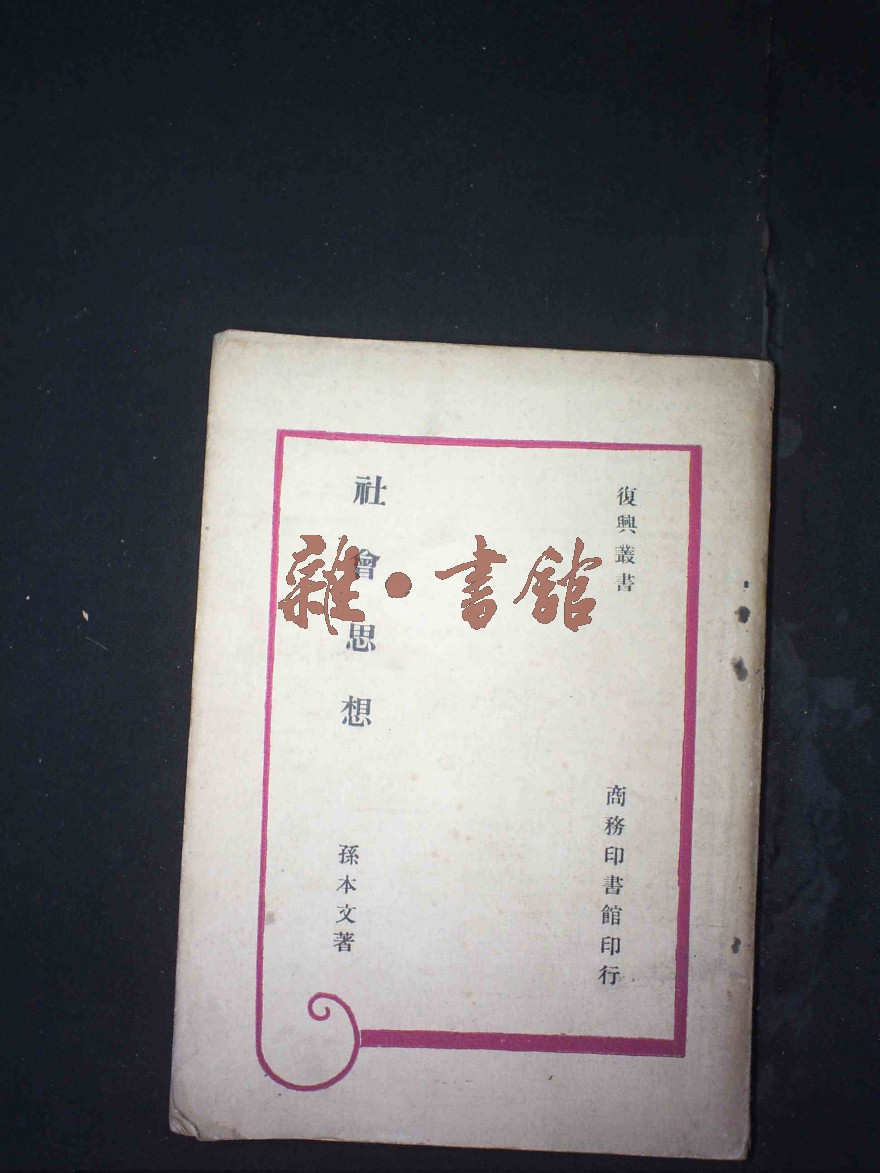 復興叢書
商務印書館印行
社會思想
孫本文著
雜·書館